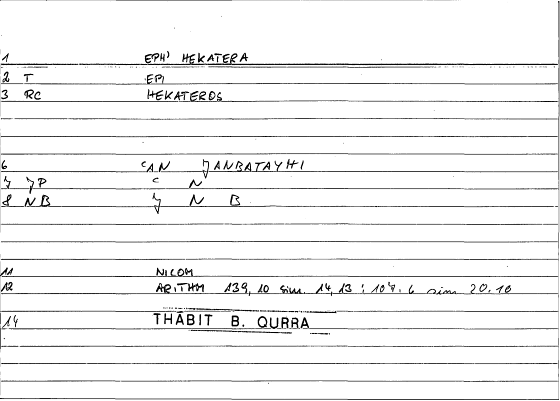 1 EPH' HEKATERA
2 T EPI
3 RC HEKATEROS
6 ᶜAN JANBATAYHI
7 JP ᶜ N
8 NB J N B
11 NICOM
12 ARITHM 139, 10 sim. 14, 13 ; 107. 6 sim 20.10
14 THĀBIT B. QURRA